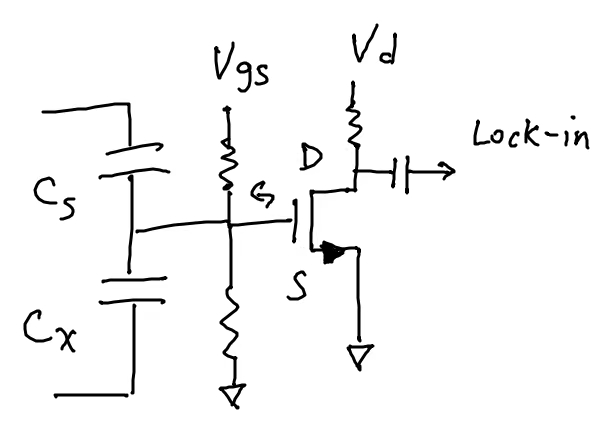 Vgs
Vd
Lock-in
D
G
Cs
S
Cx